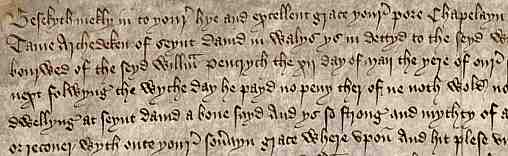 Besekyth mekly un to your hye and excellent grace your pore Chapelayn
Tane Archedeken of seynt david in walys ys in dettyd to the seyd W
borwed of the seyd Willm Penrych the xii day of Maii the yere of our
next folwyng the wyche day he payd no peny ther of ne noth wold no
dwellyng at seynt david a bove sayd And ys so strong and myghty of a
or recover wyth oute your soverayn grace where upon And hit plese